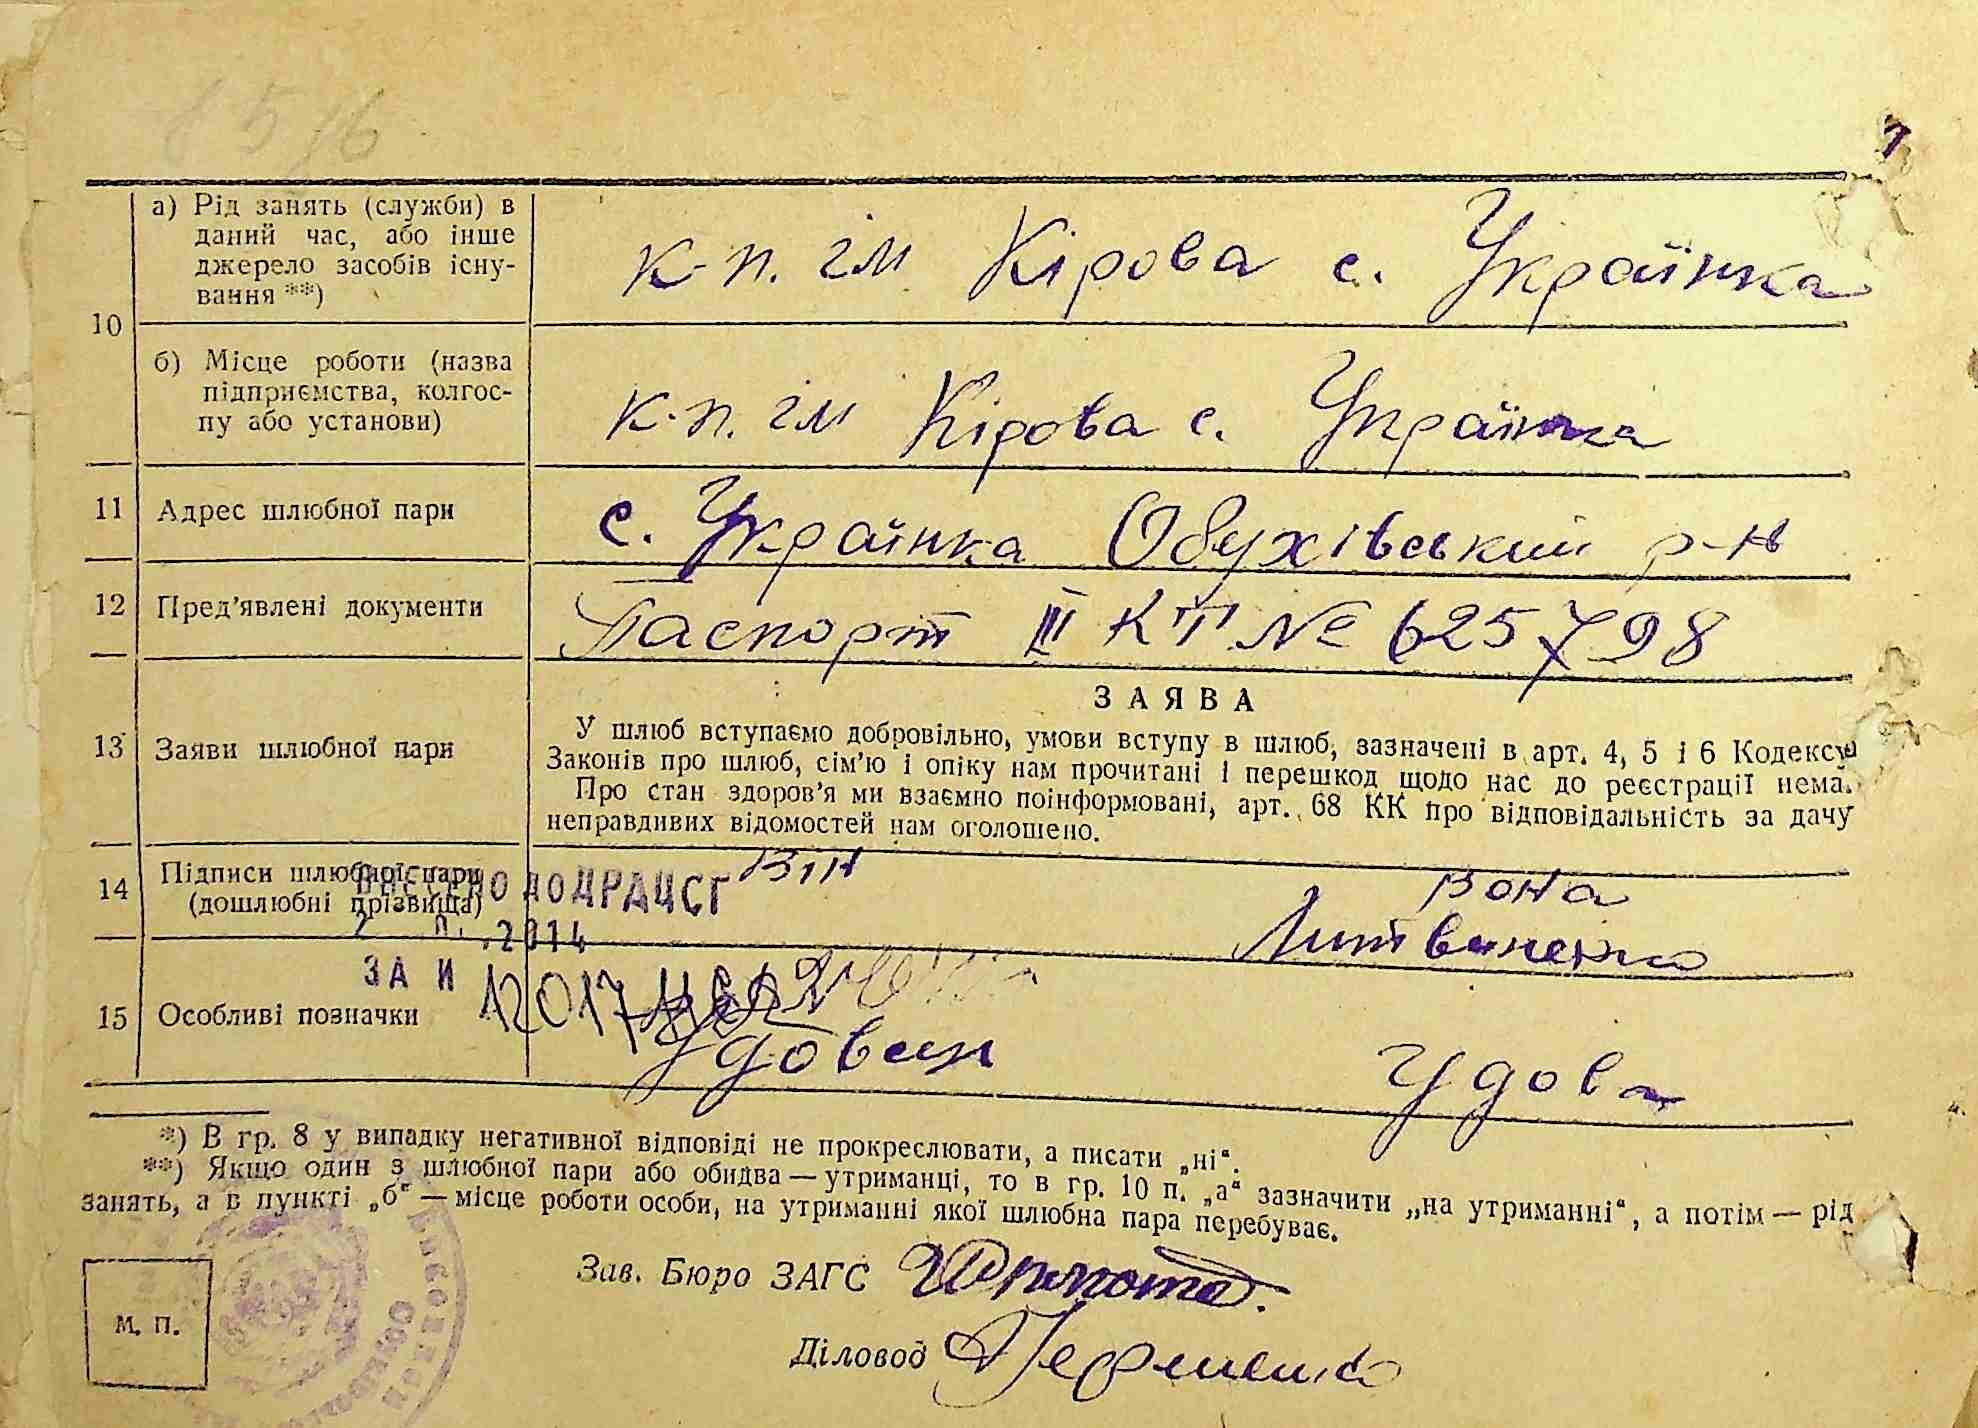 а) Рід занять (служби) в
даний час, або інше
джерело засобів існу-
вання **)
к-п. ім Кірова с. Українка
10
б) Місце роботи (назва
підприємства, колгос-
пу або установи)
к-п. ім Кірова с. Українка
11 Адрес шлюбної пари с. Українка Обухівський р-н
12 Пред'явлені документи Паспорт III КТ № 625798
ЗАЯВА
13 Заяви шлюбної пари
У шлюб вступаємо добровільно, умови вступу в шлюб, зазначені в арт. 4, 5 і 6 Кодексу
Законів про шлюб, сім'ю і опіку нам прочитані і перешкод щодо нас до реєстрації нема.
Про стан здоров'я ми взаємно поінформовані, арт. 68 КК про відповідальність за дачу
неправдивих відомостей нам оголошено.
14 Підписи шлюбної пари
(дошлюбні прізвища)
Він Вона
Литвиненко
ВНЕСЕНО ДО ДРАЦСГ
.2014
ЗА
15 Особливі позначки
Удовець Удова
*) В гр. 8 у випадку негативної відповіді не прокреслювати, а писати „ні“.
**) Якщо один з шлюбної пари або обидва — утриманці, то в гр. 10 п. „а“ зазначити „на утриманні“, а потім — рід
занять, а в пункті „б“ — місце роботи особи, на утриманні якої шлюбна пара перебуває.
Зав. Бюро ЗАГС
Діловод
М. П.